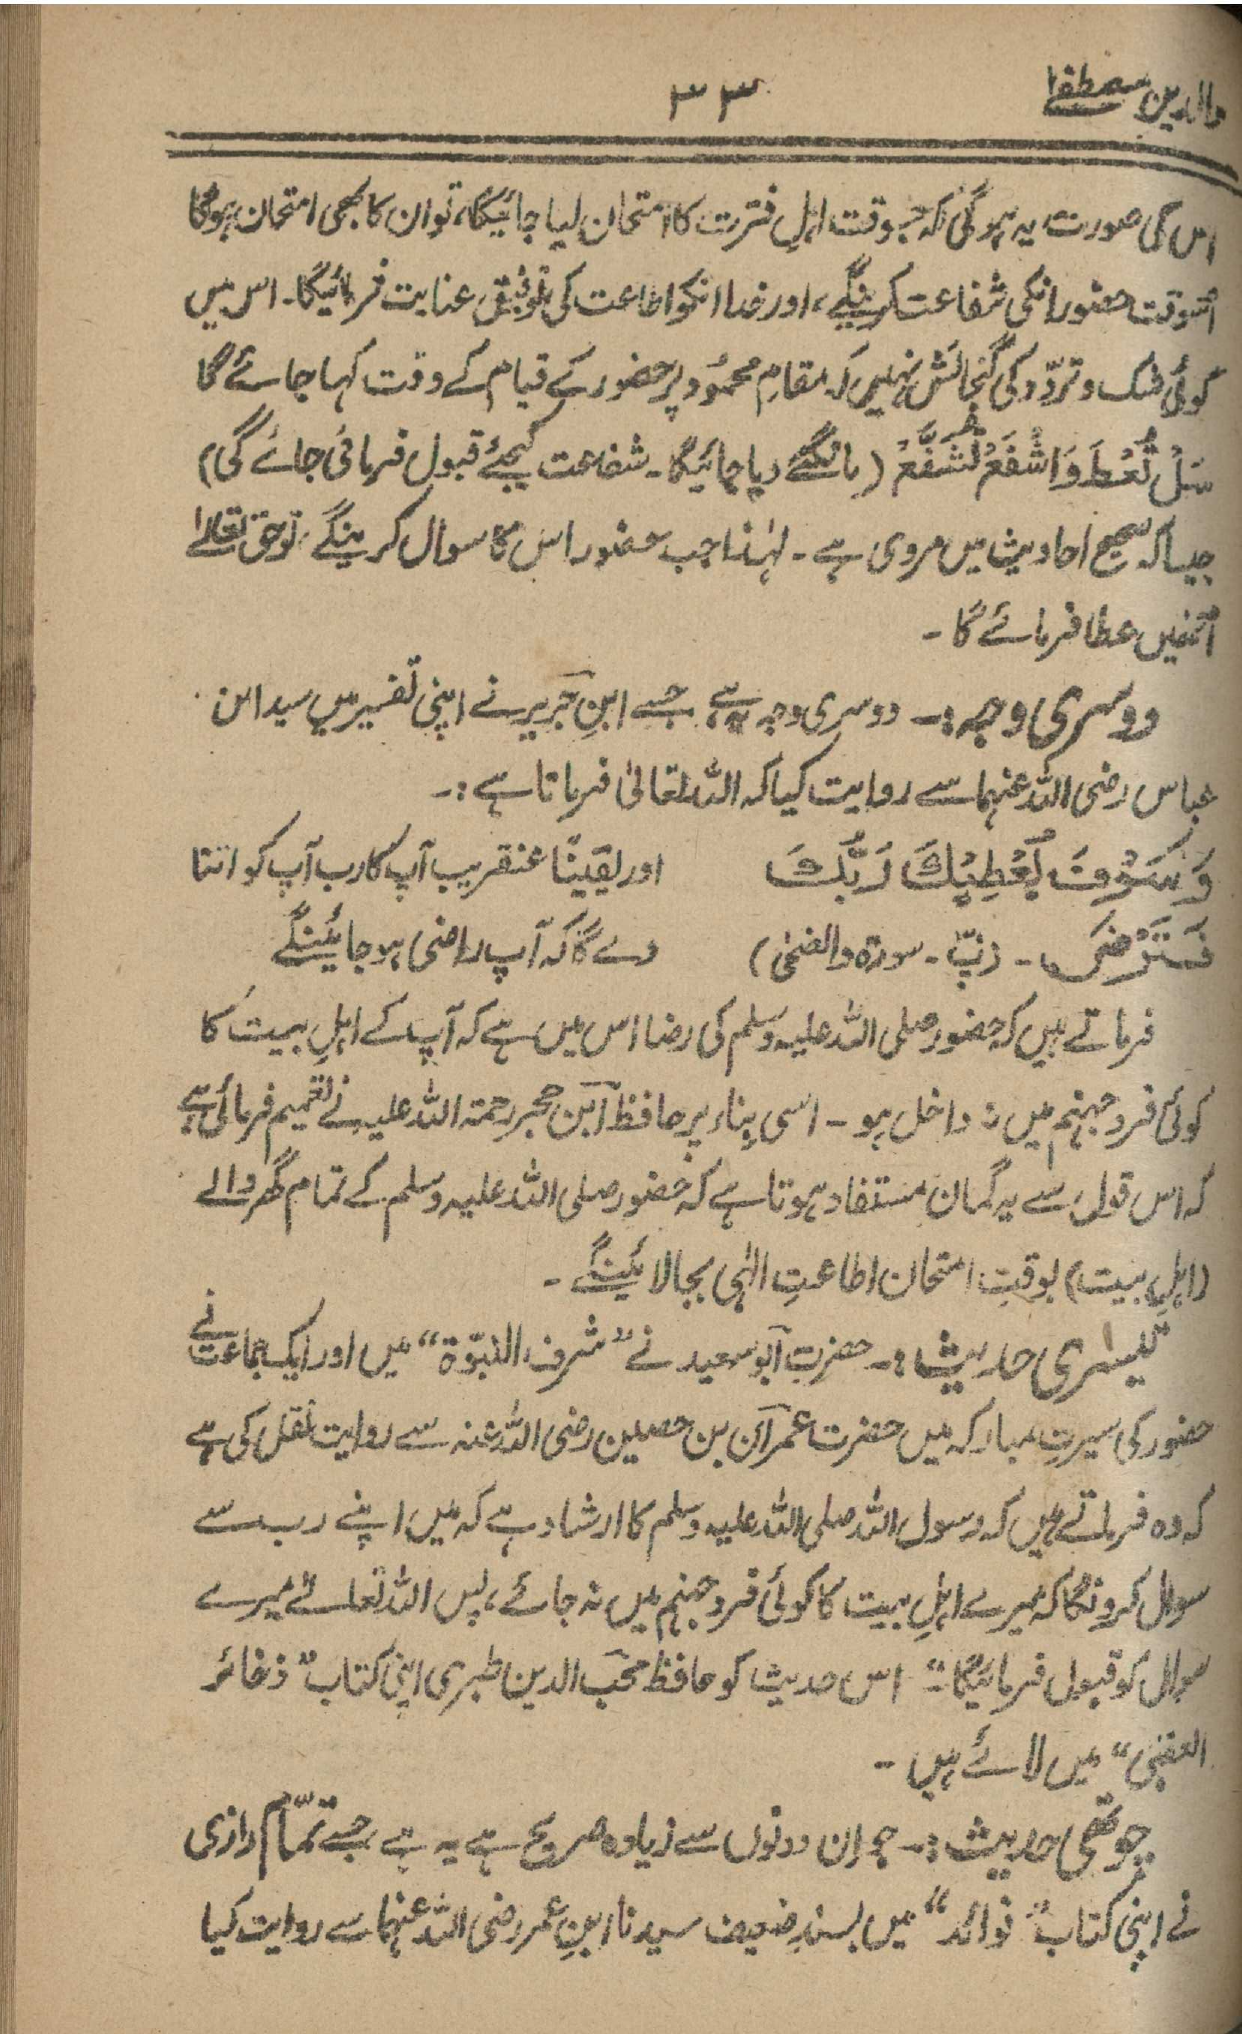 والدین مصطفےٰ
۳۳
اس کی صورت یہ ہوگی کہ جسوقت اہلِ فترت کا امتحان لیا جائیگا، تو ان کا بھی امتحان ہوگا
اُسوقت حضور انکی شفاعت کرینگے، اور خدا انکو اطاعت کی توفیق عنایت فرمائیگا۔ اس میں
کوئی شک و تردّد کی گنجائش نہیں کہ مقامِ محمُود پر حضور کے قیام کے وقت کہا جائے گا
سَلْ تُعْطَ وَاشْفَعْ تُشَفَّعْ (مانگئے دیا جائیگا۔ شفاعت کیجئے قبول فرمائی جائے گی)
جیسا کہ صحیح احادیث میں مروی ہے۔ لہٰذا جب حضور اس کا سوال کرینگے، تو حق تعالےٰ
اُنہیں عطا فرمائے گا۔
دوسری وجہ:۔ دوسری وجہ یہ ہے جسے ابنِ جَریر نے اپنی تفسیر میں سیدا ابن
عباس رضی اللہ عنہما سے روایت کیا کہ اللہ تعالیٰ فرماتا ہے:۔
وَسَوْفَ يُعْطِيْكَ رَبُّكَ
اور یقینًا عنقریب آپ کا رب آپ کو اتنا
فَتَرْضٰى۔ (پ۔ سورۃ والضحیٰ)
دے گا کہ آپ راضی ہو جائینگے
فرماتے ہیں کہ حضور صلی اللہ علیہ وسلم کی رضا اس میں ہے کہ آپ کے اہلِ بیت کا
کوئی فرد جہنم میں نہ داخل ہو۔ اسی بِناء پر حافظ ابن حجر رحمۃ اللہ علیہ نے تعمیم فرمائی ہے
کہ اس قول سے یہ گمان مستفاد ہوتا ہے کہ حضور صلی اللہ علیہ وسلم کے تمام گھر والے
(اہلِ بیت) بوقتِ امتحان اطاعتِ الٰہی بجا لائینگے۔
تیسری حدیث:۔ حضرت ابو سعید نے ”شرف النبوّۃ“ میں اور ایک جماعت نے
حضور کی سیرتِ مبارکہ میں حضرت عمران بن حصین رضی اللہ عنہ سے روایت نقل کی ہے
کہ وہ فرماتے ہیں کہ رسول اللہ صلی اللہ علیہ وسلم کا ارشاد ہے کہ میں اپنے رب سے
سوال کرونگا کہ میرے اہلِ بیت کا کوئی فرد جہنم میں نہ جائے، پس اللہ تعالےٰ میرے
سوال کو قبول فرمائیگا“۔ اس حدیث کو حافظ محبّ الدین طبری اپنی کتاب ”ذخائر
العقبیٰ“ میں لائے ہیں۔
چوتھی حدیث:۔ جو ان دونوں سے زیادہ صریح ہے یہ ہے جسے تمّام رازی
نے اپنی کتاب ”فوائد“ میں بسندِ ضعیف سیدنا ابنِ عمر رضی اللہ عنہما سے روایت کیا